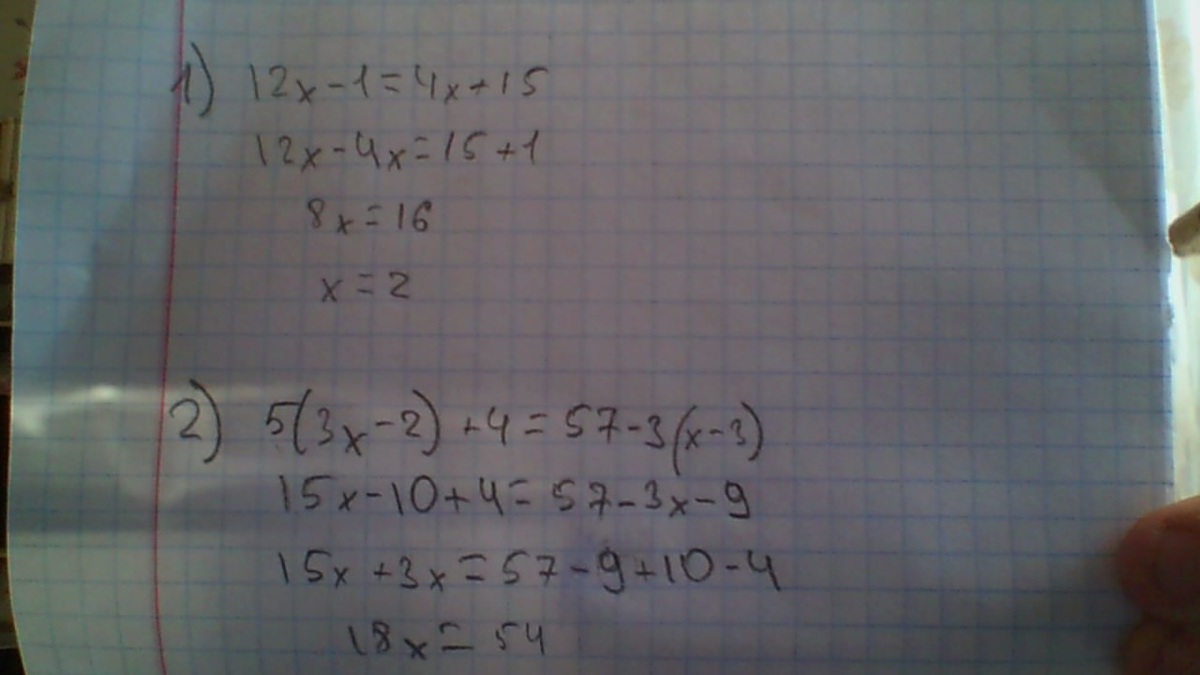 1) 12x-1=4x+15
12x-4x=15+1
8x=16
x=2
2) 5(3x-2)+4=57-3(x-3)
15x-10+4=57-3x-9
15x+3x=57-9+10-4
18x=54